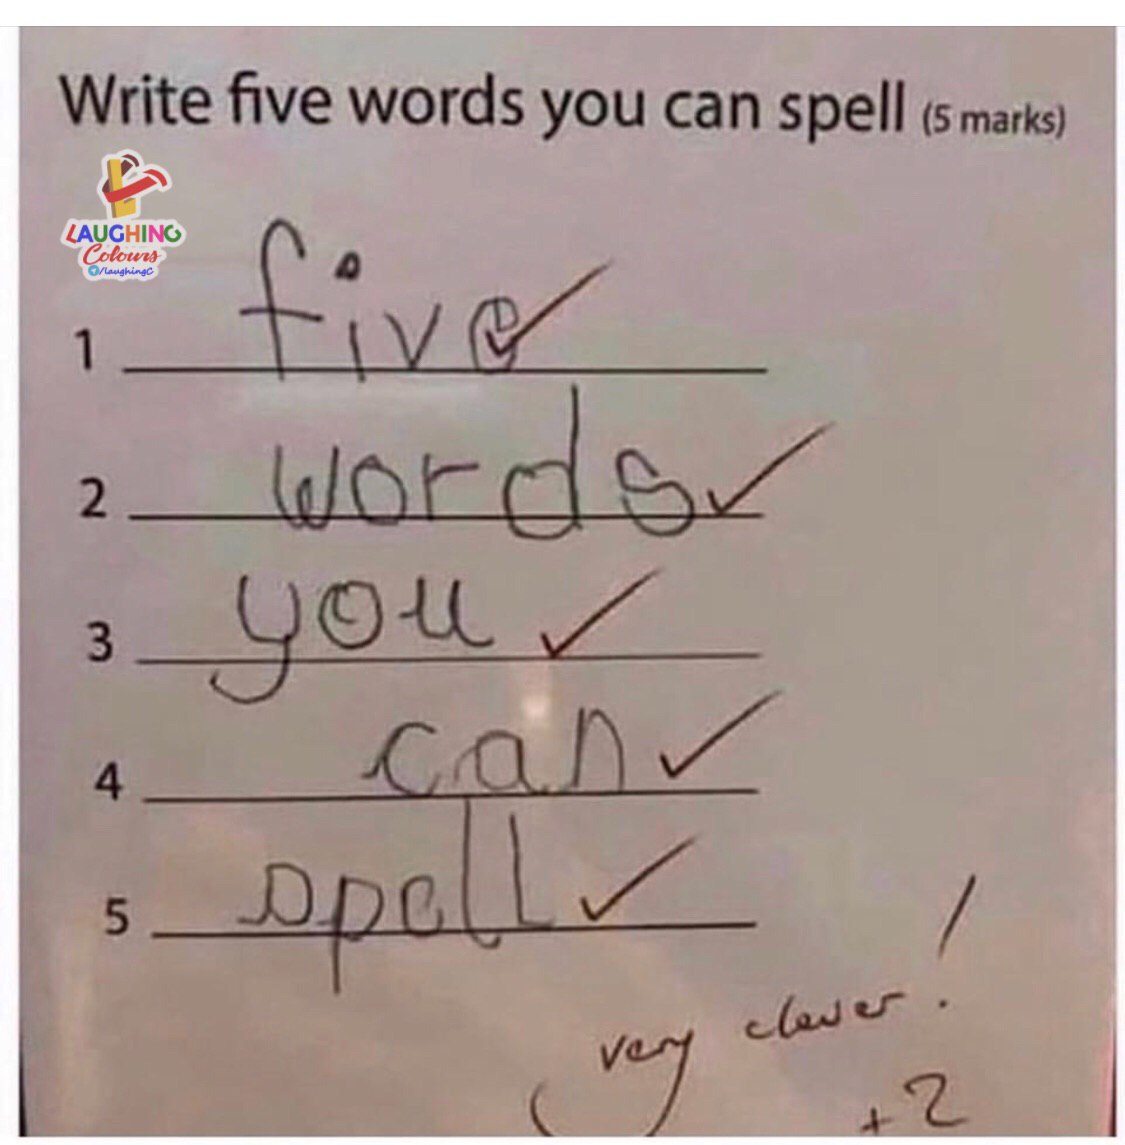 Write five words you can spell (5 marks)
LAUGHING
Colours
/laughingC
1 five
2 words
3 you
4 can
5 spell
very clever!
+2